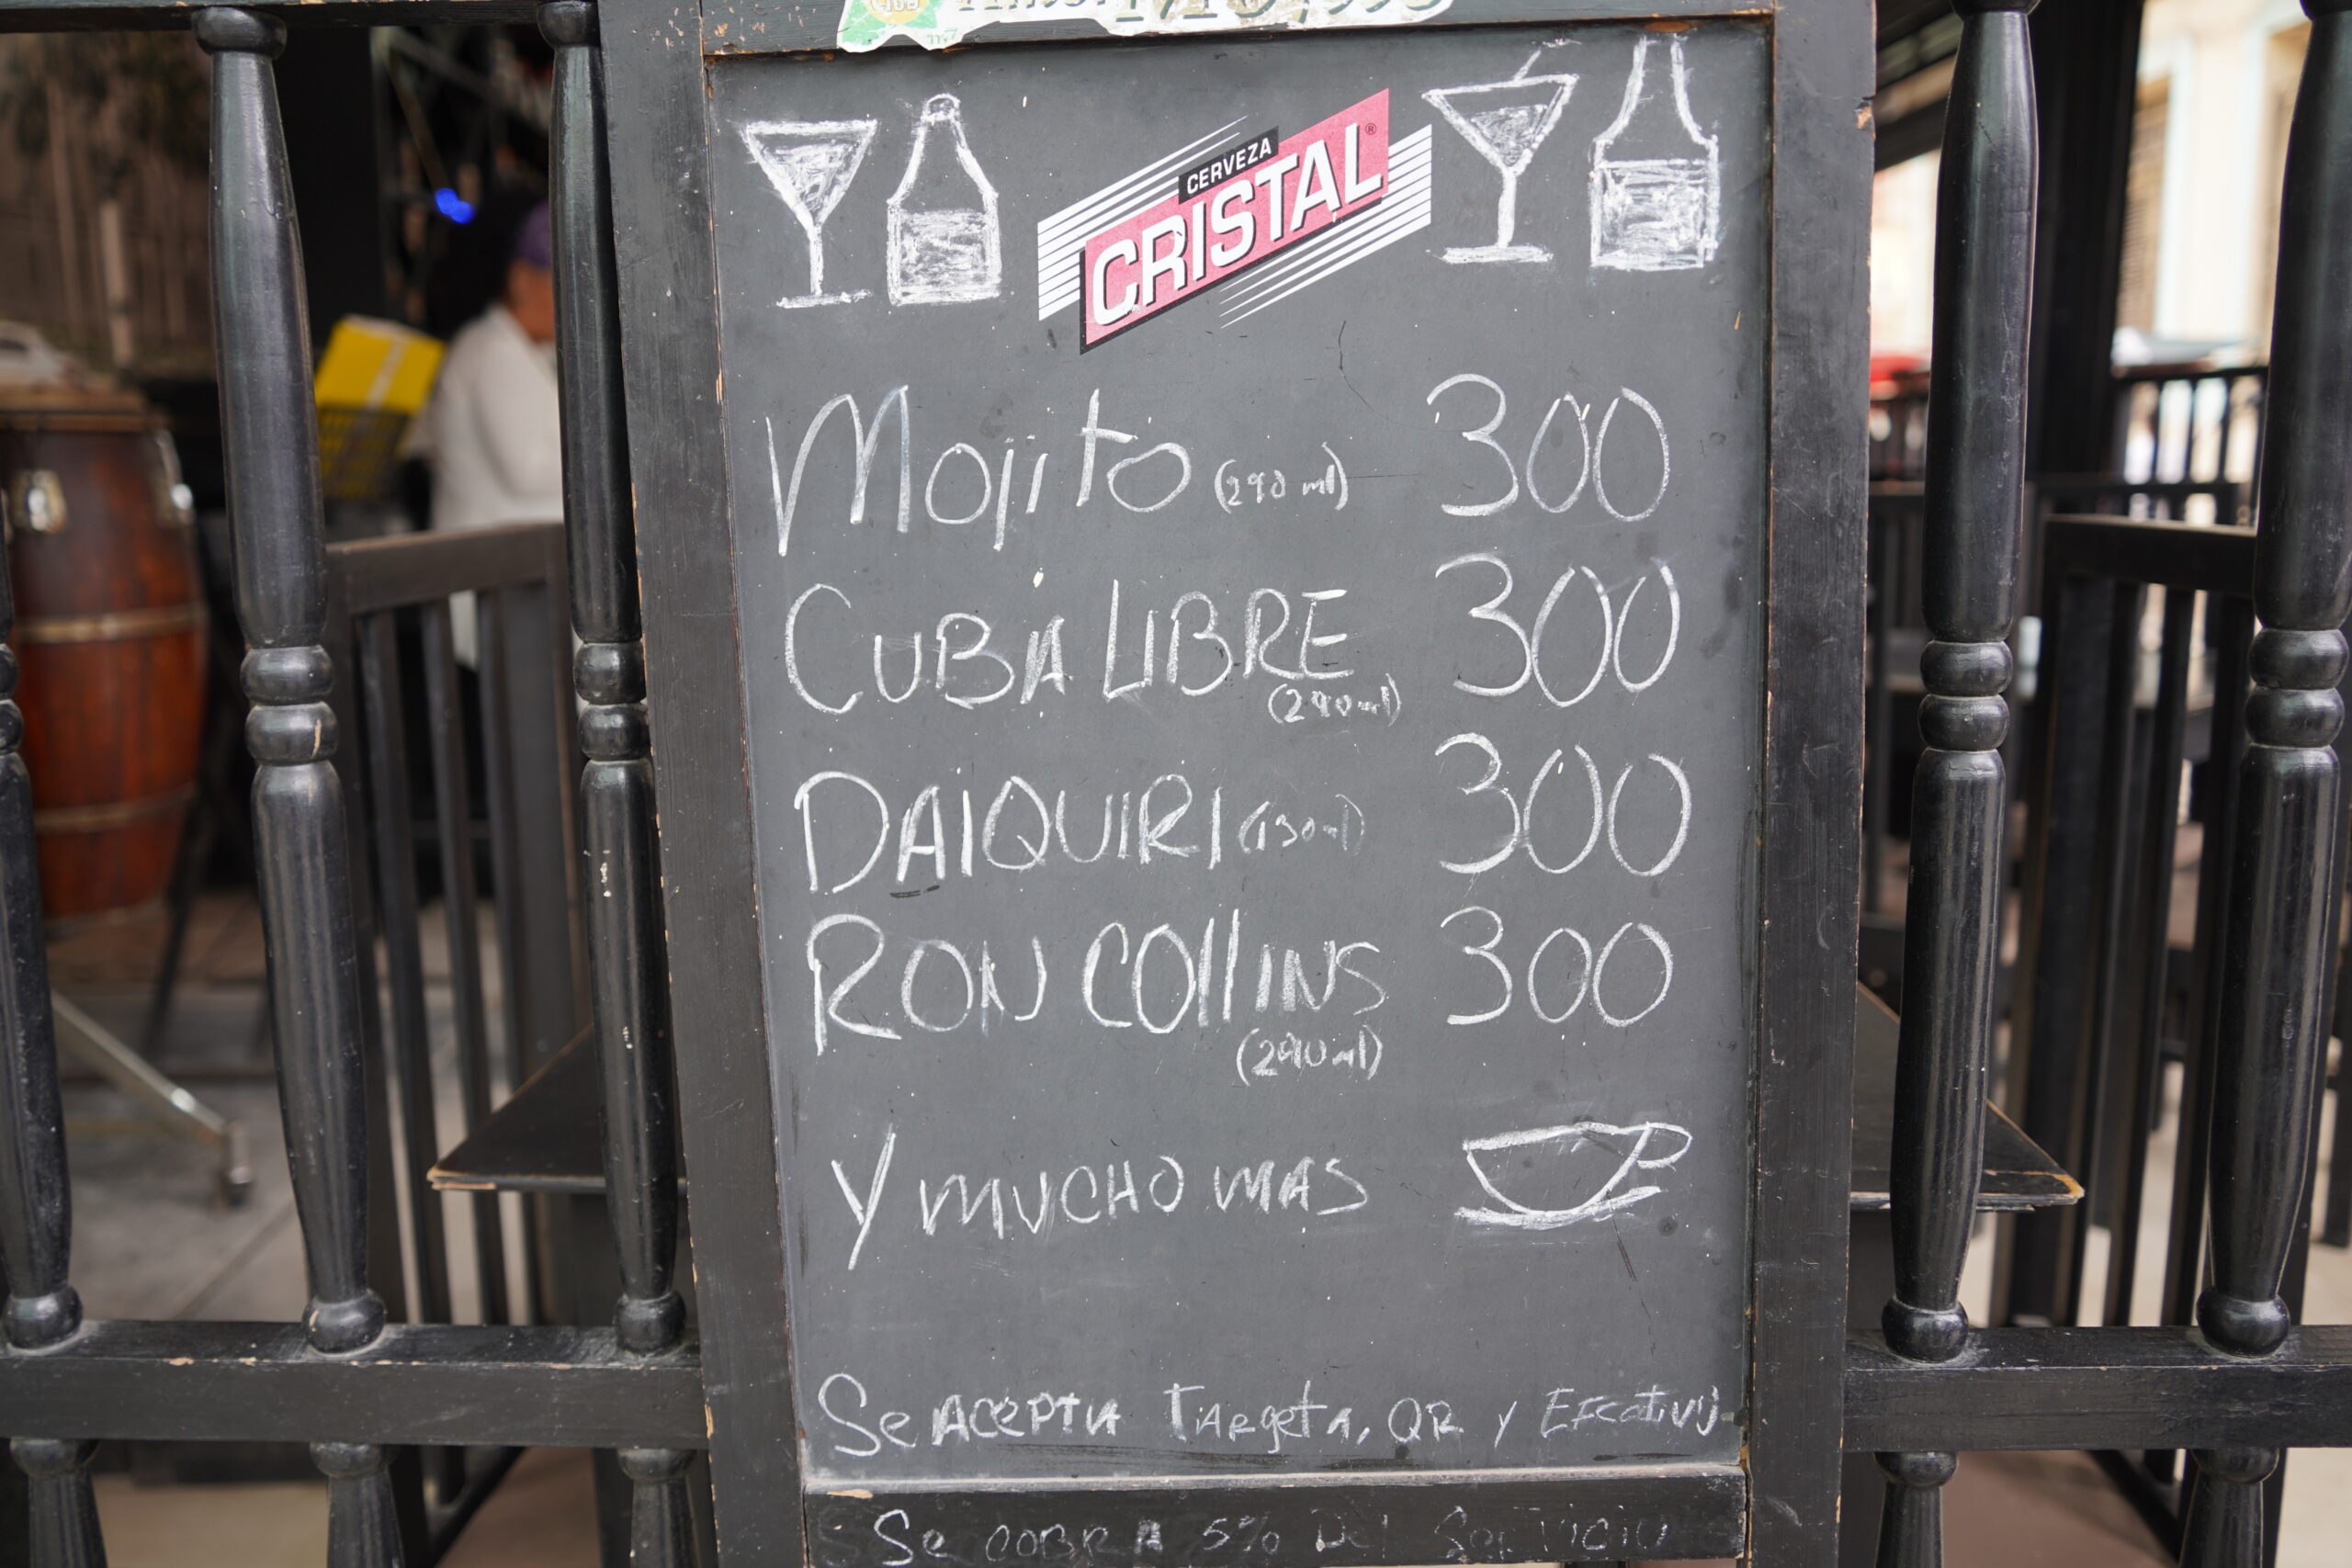 CERVEZA
CRISTAL®
Mojito (290 ml) 300
CUBA LIBRE 300
(290ml)
DAIQUIRI (130ml) 300
RON COllINS 300
(290ml)
Y MUCHO MAS
Se ACEPTA TARgetA, QR y EFECtivo
Se COBRA 5% Del SerVICIO